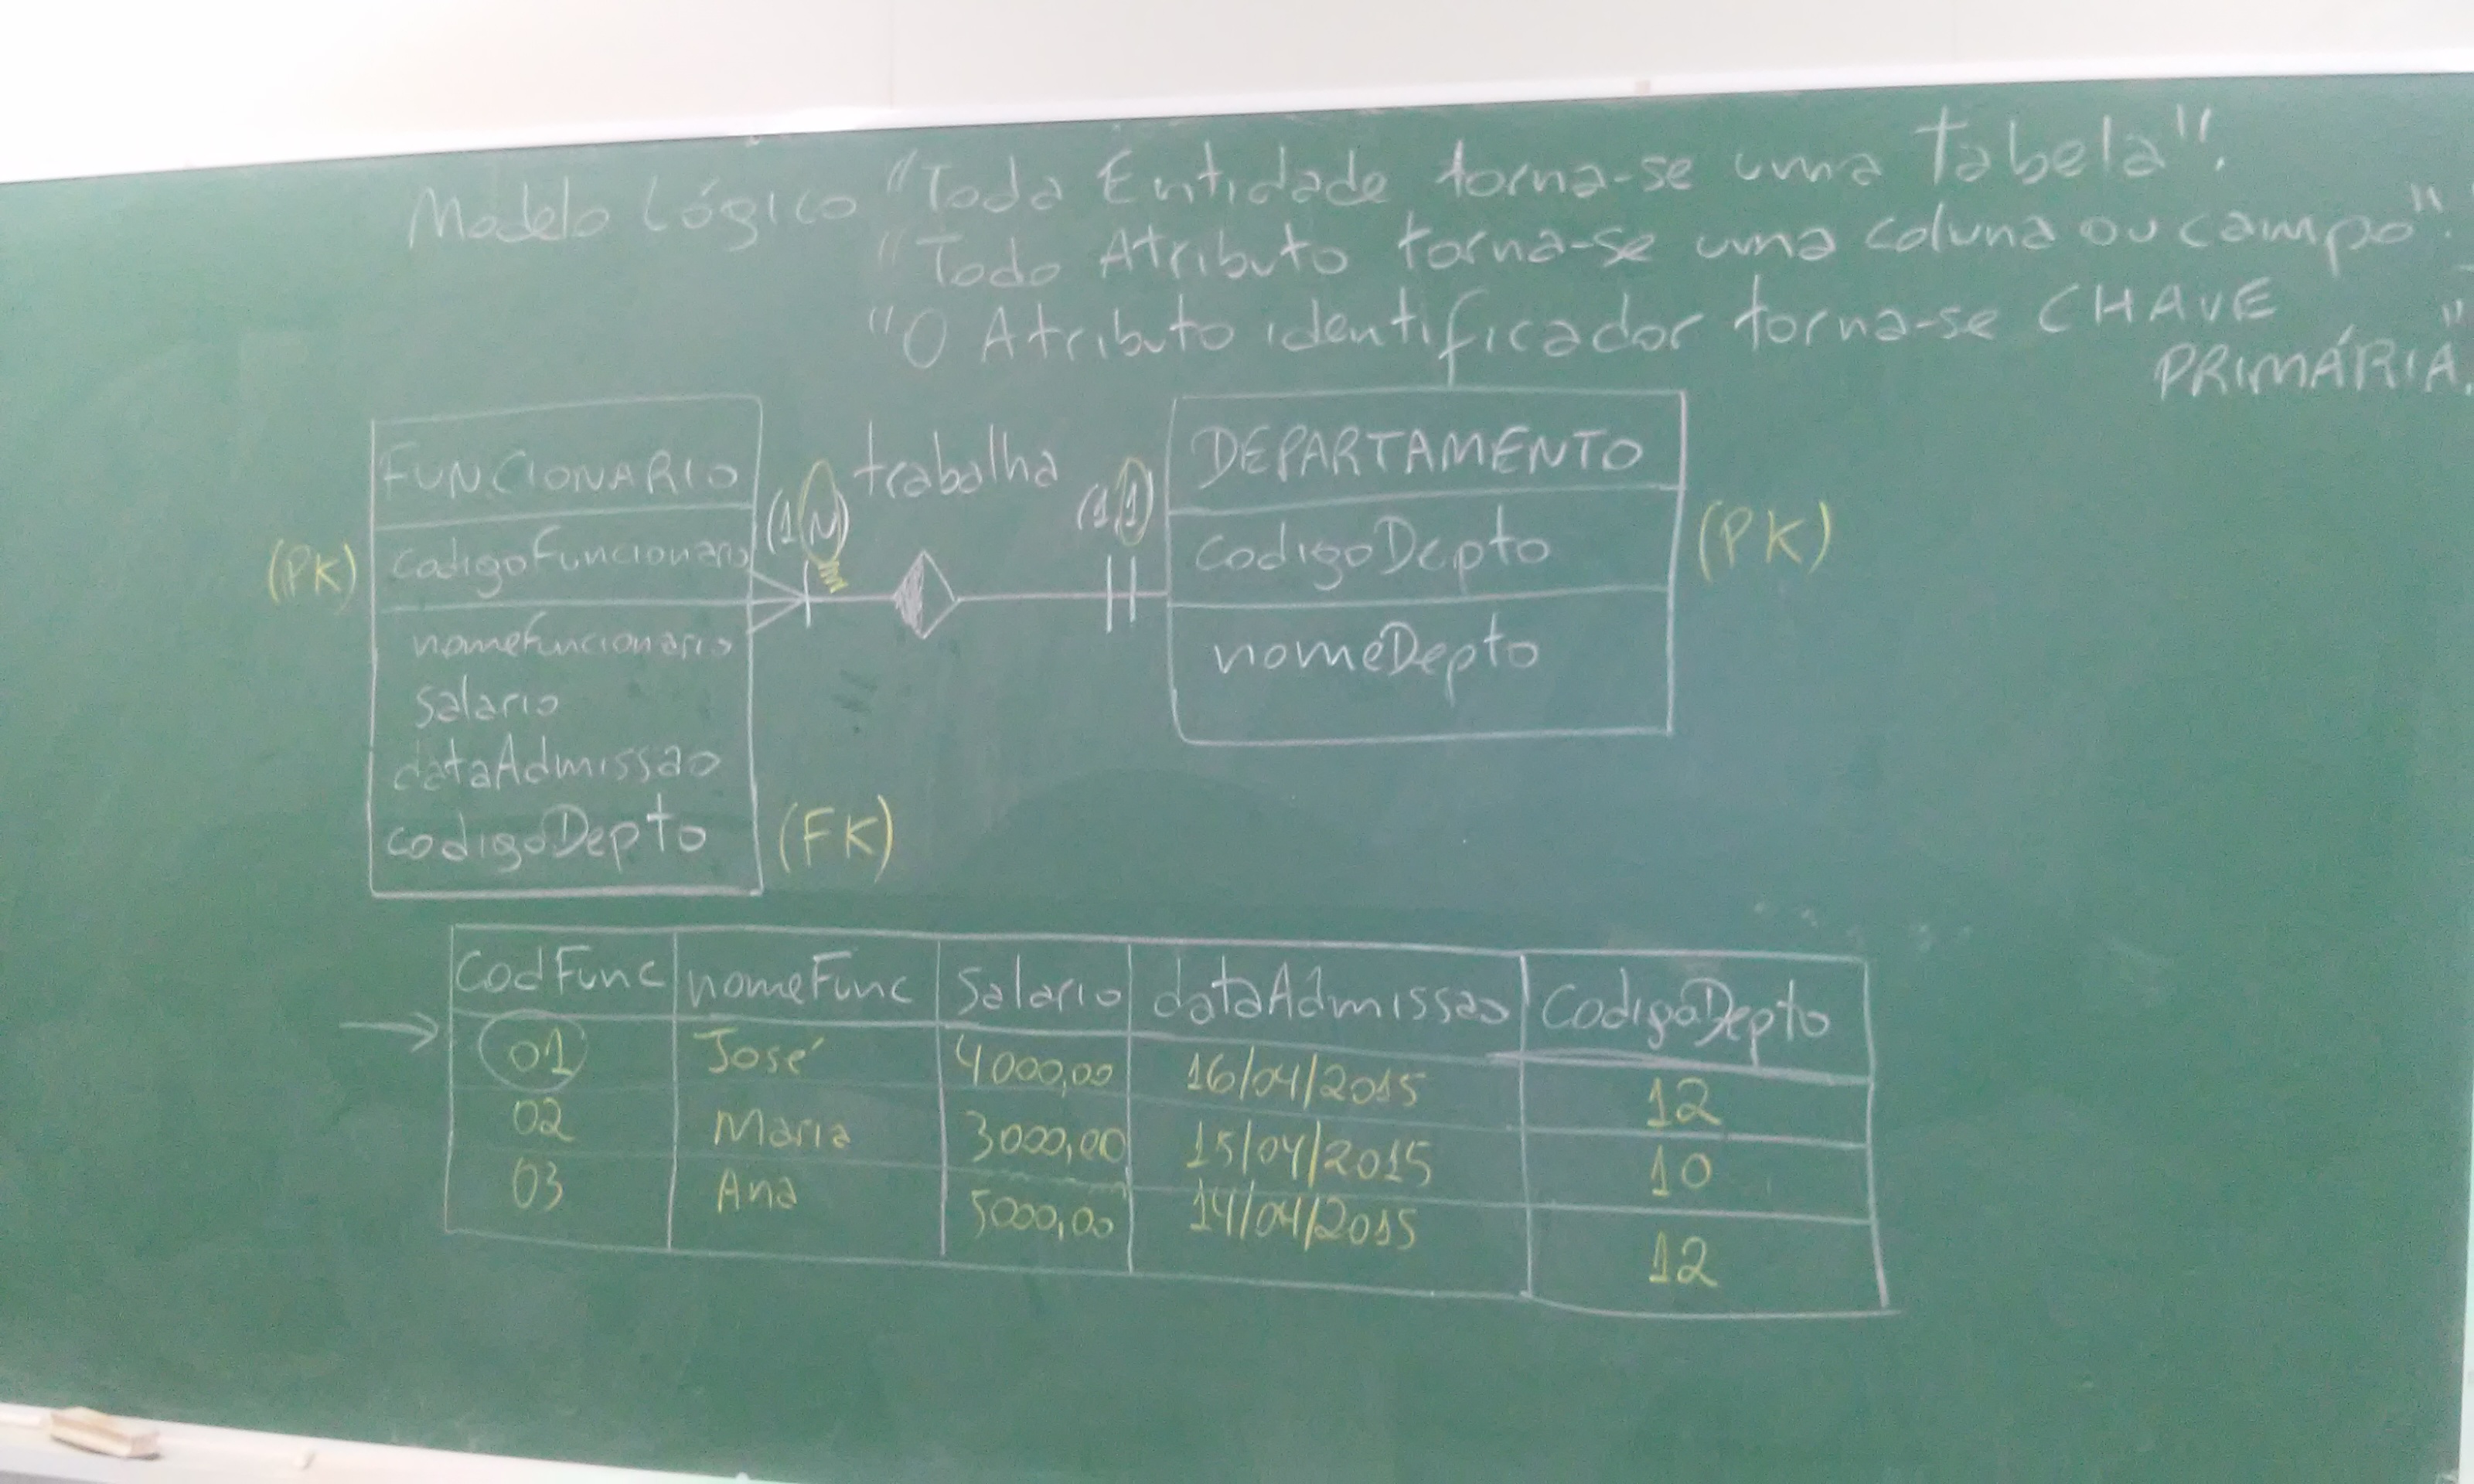 Modelo Lógico "Toda Entidade torna-se uma tabela".
"Todo Atributo torna-se uma coluna ou campo".
"O Atributo identificador torna-se CHAVE
PRIMÁRIA."
FUNCIONARIO
(PK) codigoFuncionario
nomeFuncionario
salario
dataAdmissao
codigoDepto (FK)
(1,N) trabalha (1,1)
DEPARTAMENTO
codigoDepto (PK)
nomeDepto
codFunc nomeFunc Salario dataAdmissao CodigoDepto
01 José 4000,00 16/04/2015 12
02 Maria 3000,00 15/04/2015 10
03 Ana 5000,00 14/04/2015 12